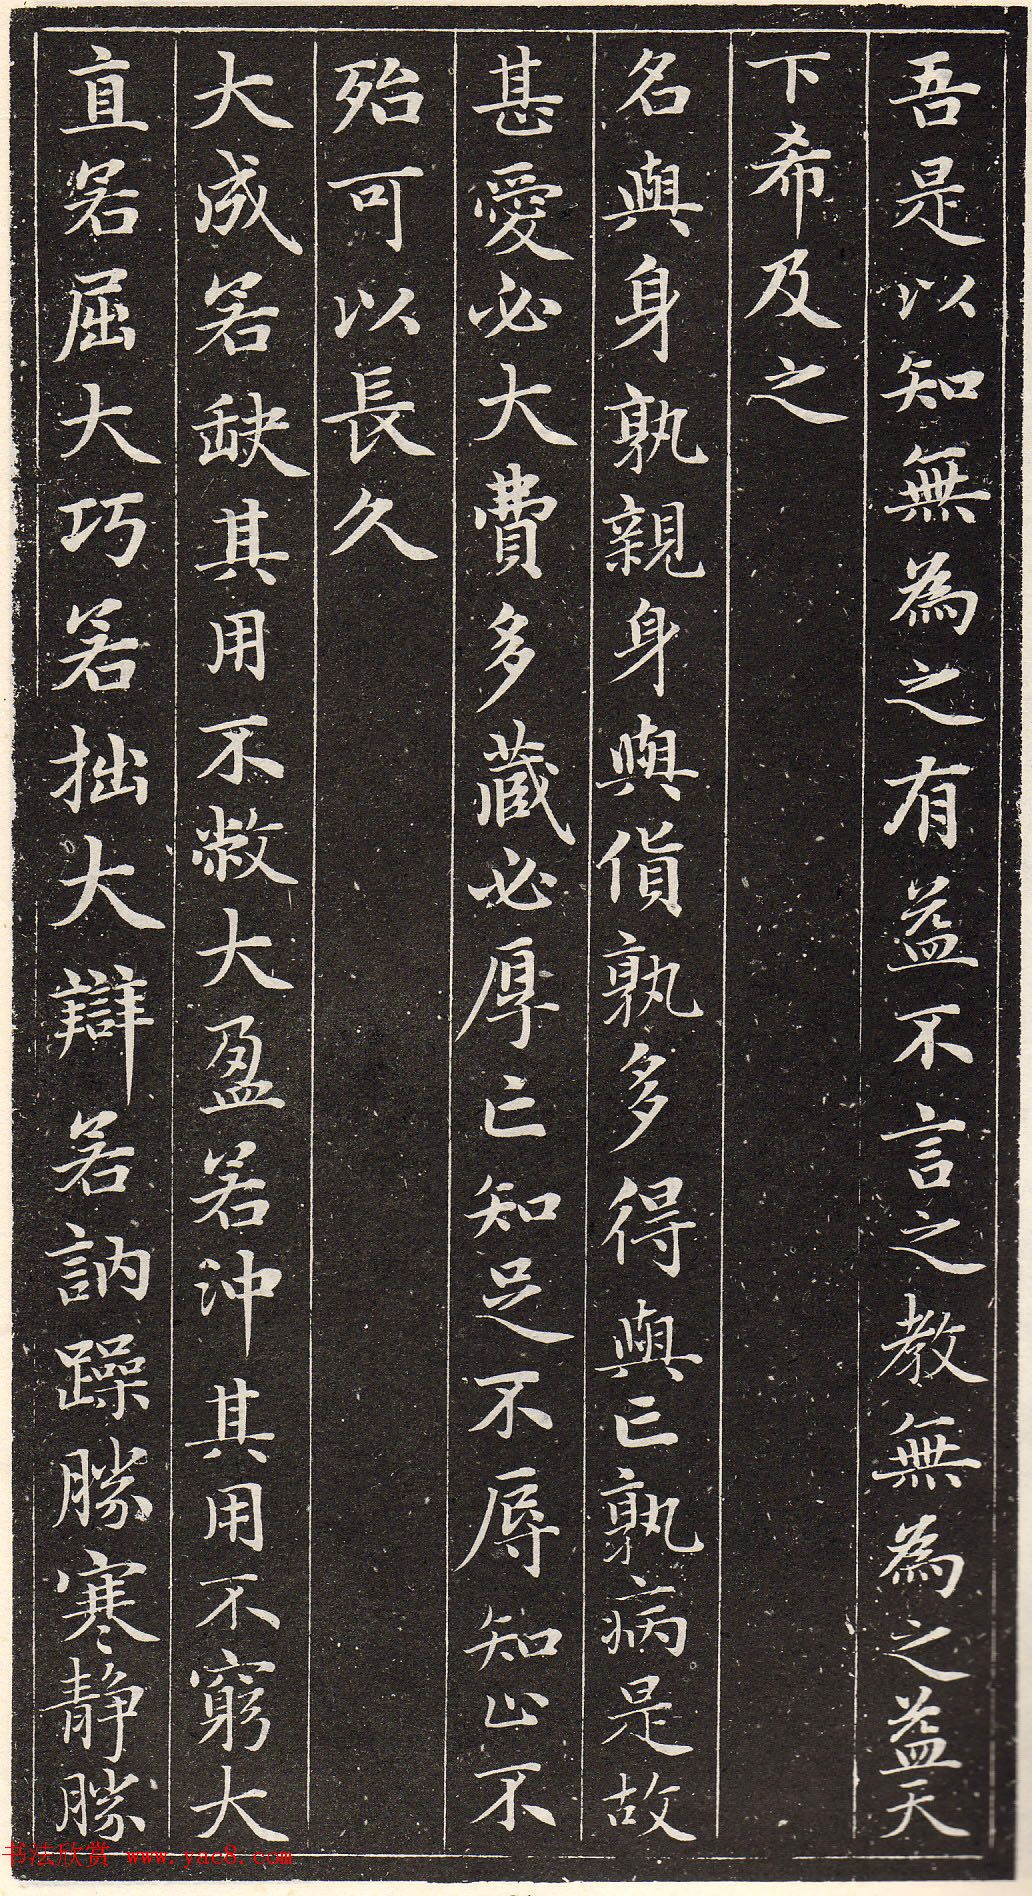 吾是以知無為之有益不言之教無為之益天
下希及之
名與身孰親身與貨孰多得與亡孰病是故
甚愛必大費多藏必厚亡知足不辱知止不
殆可以長久
大成若缺其用不敝大盈若沖其用不窮大
直若屈大巧若拙大辯若訥躁勝寒靜勝
书法欣赏 www.yac8.com